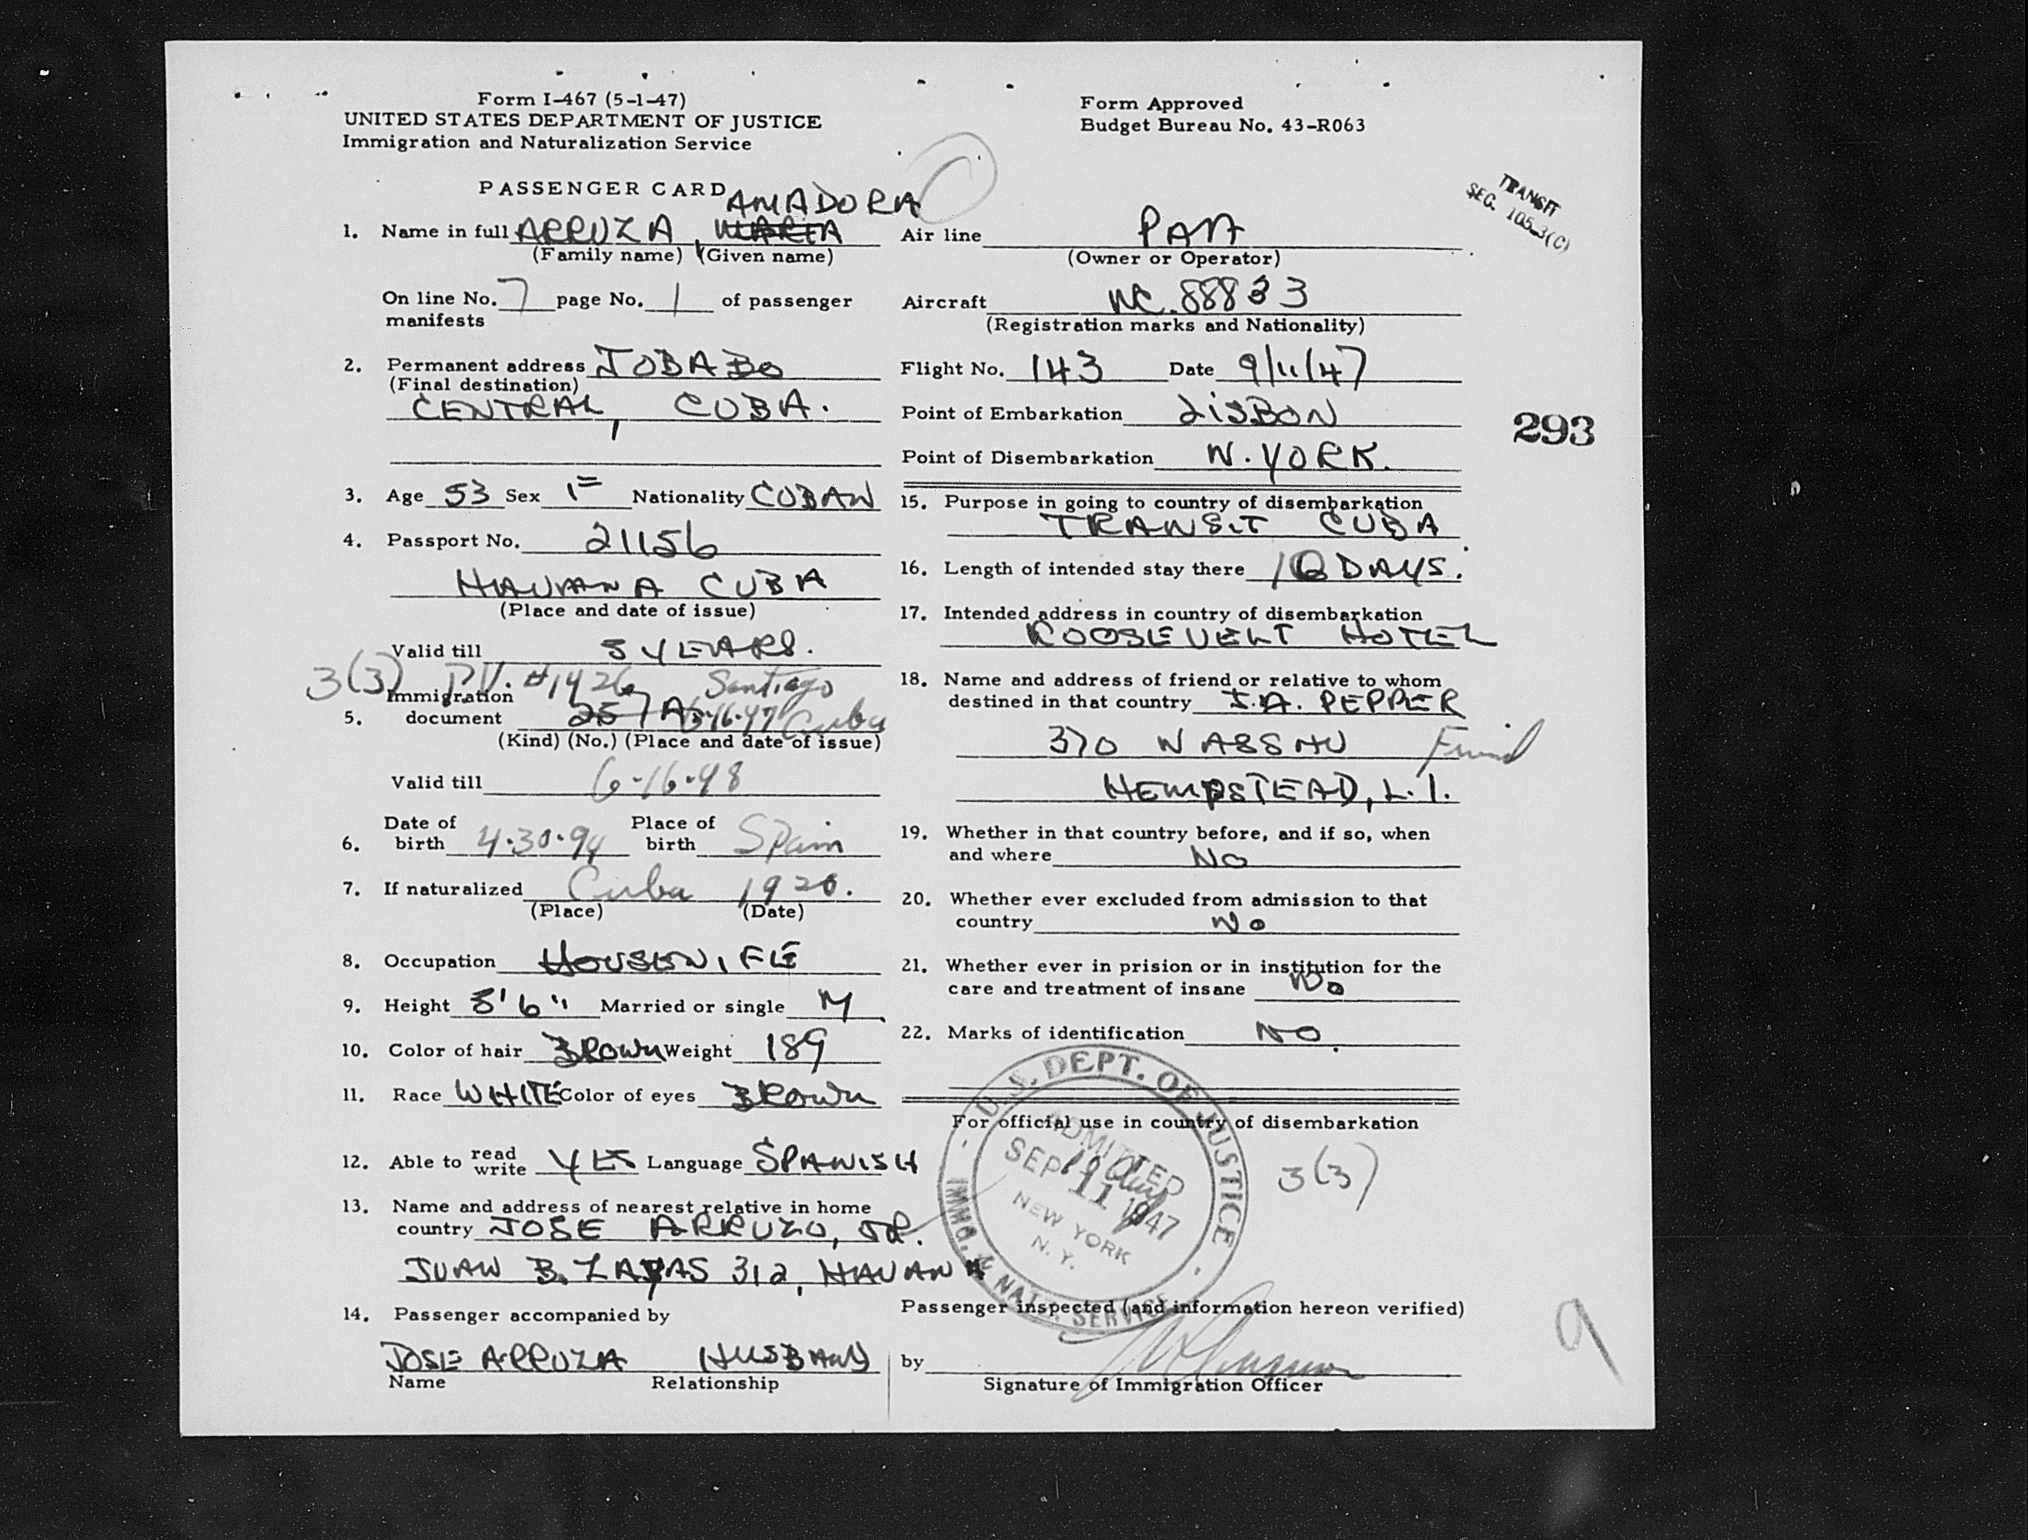 Form I-467 (5-1-47)
UNITED STATES DEPARTMENT OF JUSTICE
Immigration and Naturalization Service
Form Approved
Budget Bureau No. 43-R063
TRANSIT
SEC. 105.3(C)
PASSENGER CARD
AMADORA
1. Name in full ARRUZA, MARIA
(Family name) (Given name)
On line No. 7 page No. 1 of passenger
manifests
2. Permanent address JOBABO
(Final destination)
CENTRAL, CUBA.
3. Age 53 Sex F Nationality CUBAN
4. Passport No. 21156
HAVANA CUBA
(Place and date of issue)
Valid till 5 YEARS.
3(3) P.V. #1426 Santiago
Immigration
5. document 257A 6-16-47 Cuba
(Kind) (No.) (Place and date of issue)
Valid till 6-16-48
6. Date of birth 4-30-94 Place of birth Spain
7. If naturalized Cuba 1920.
(Place) (Date)
8. Occupation HOUSEWIFE
9. Height 5'6" Married or single M
10. Color of hair BROWN Weight 189
11. Race WHITE Color of eyes BROWN
12. Able to read write YES Language SPANISH
13. Name and address of nearest relative in home
country JOSE ARRUZO, JR.
JUAN B. ZAYAS 312, HAVANA
14. Passenger accompanied by
JOSE ARRUZA HUSBAND
Name Relationship
Air line PAA
(Owner or Operator)
Aircraft NC.88833
(Registration marks and Nationality)
Flight No. 143 Date 9/11/47
Point of Embarkation LISBON
293
Point of Disembarkation N.YORK.
15. Purpose in going to country of disembarkation
TRANSIT CUBA
16. Length of intended stay there DAYS.
17. Intended address in country of disembarkation
ROOSEVELT HOTEL
18. Name and address of friend or relative to whom
destined in that country J.A. PEPPER
370 NASSAU Friend
HEMPSTEAD, L.I.
19. Whether in that country before, and if so, when
and where NO
20. Whether ever excluded from admission to that
country NO
21. Whether ever in prision or in institution for the
care and treatment of insane NO
22. Marks of identification NO.
For official use in country of disembarkation
U.S. DEPT. OF JUSTICE
ADMITTED
SEP 11 1947
NEW YORK
N. Y.
IMMG. & NAT'Z SERVICE
3(3)
Passenger inspected (and information hereon verified)
by
Signature of Immigration Officer
9